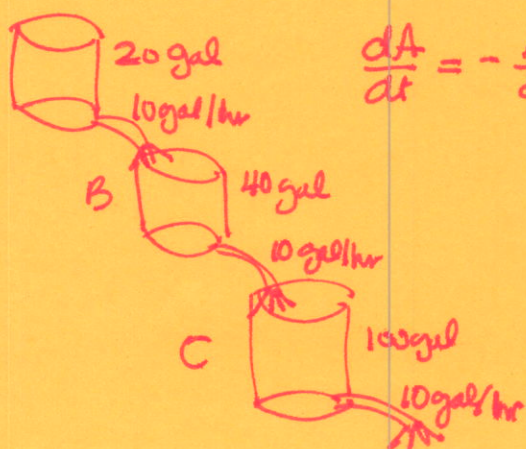 20 gal
dA/dt = -
10 gal/hr
B
40 gal
10 gal/hr
C
100 gal
10 gal/hr